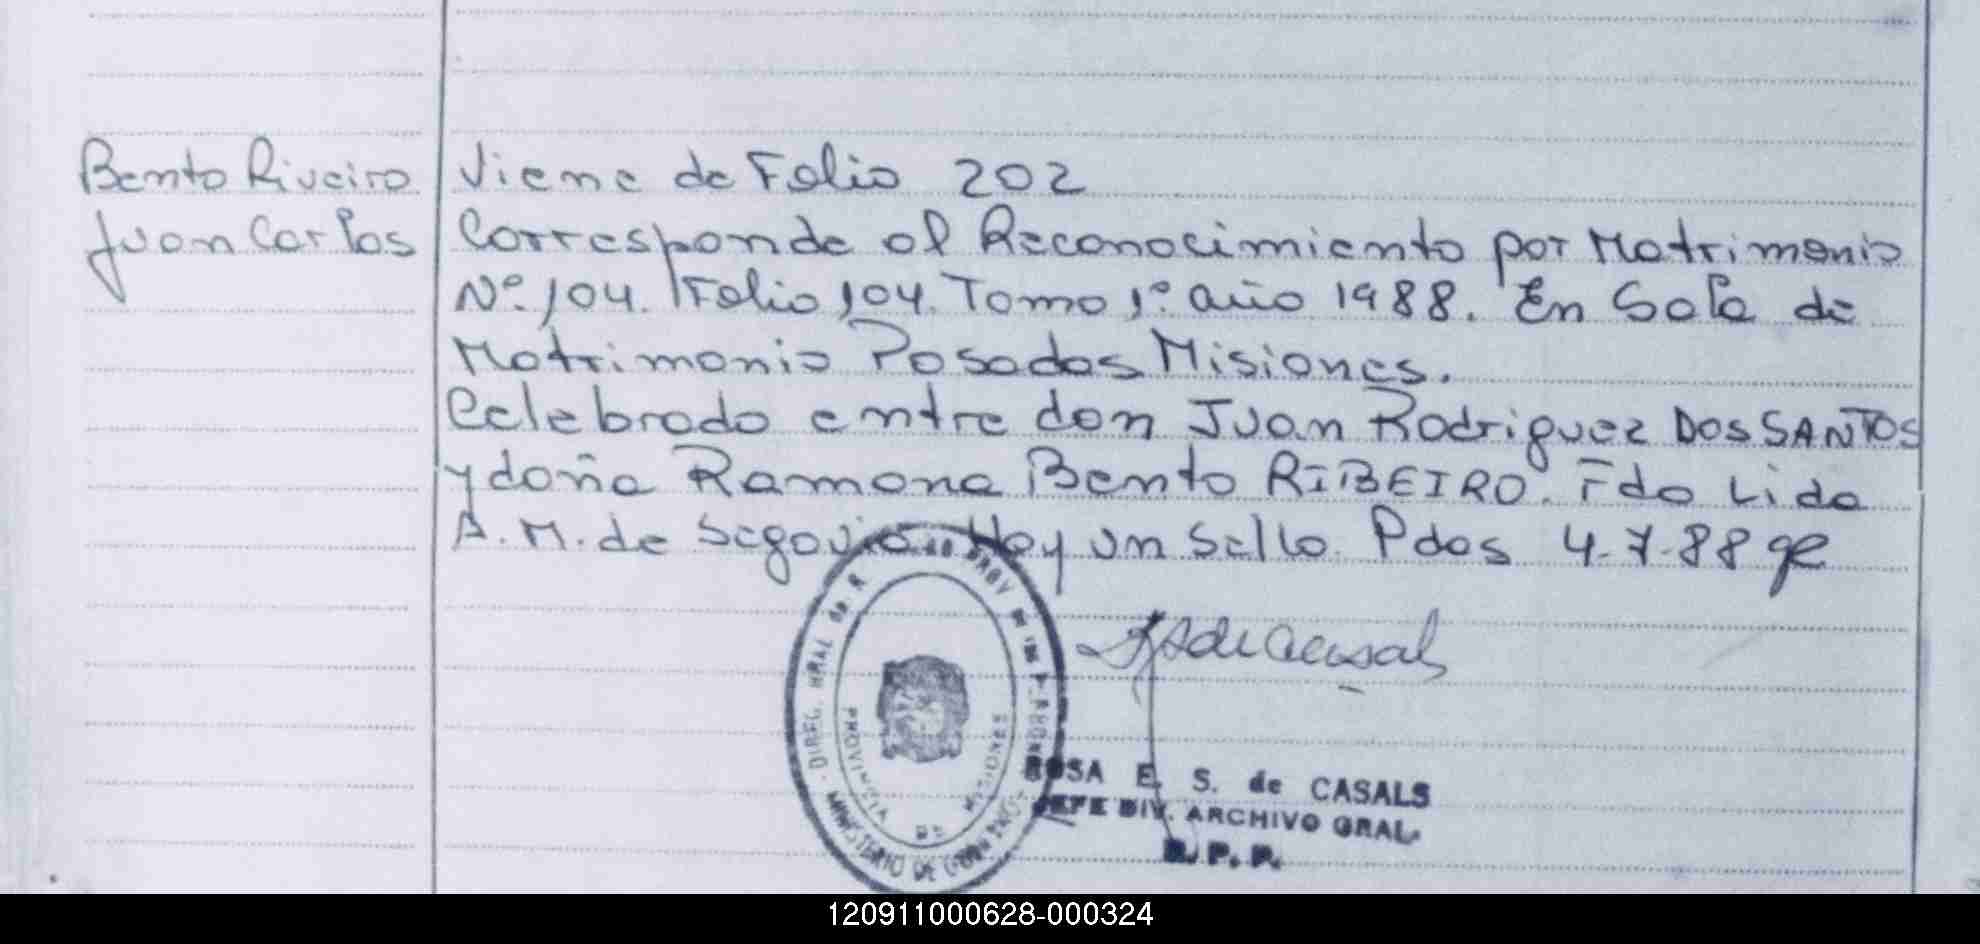 Bento Riveiro
Juan Carlos
Viene de Folio 202
Corresponde al Reconocimiento por Matrimonio
Nº 104. Folio 104. Tomo 1º año 1988. En Sala de
Matrimonio Posadas Misiones.
Celebrado entre don Juan Rodriguez DOS SANTOS
y doña Ramona Bento RIBEIRO. Fdo Lida
A. M. de Segovia. Hay un sello. Pdas 4-7-88
DIREC. GRAL de R. PROV de las P.
PROVINCIA DE MISIONES
MINISTERIO DE GOBIERNO
ROSA E. S. de CASALS
JEFE DIV. ARCHIVO GRAL.
R. P. P.
120911000628-000324